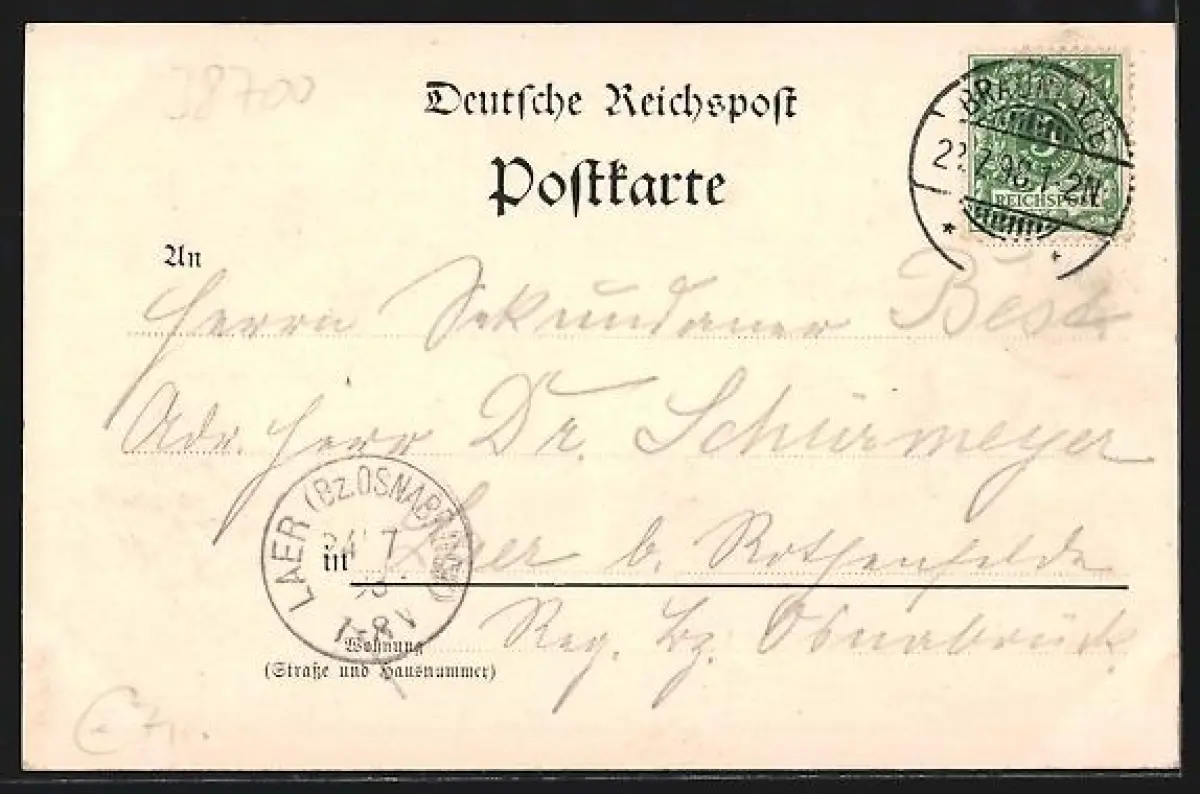 38700
Deutsche Reichspost
Postkarte
BRAUNLAGE
7 98 1-2N
REICHSPOST
An
Herrn Sekundaner Best
Adr. Herr Dr. Schürmeyer
LAER (Bz. OSNABRÜCK)
24 7
7-8V
in Laer b. Rothenfelde
Reg. Bz. Osnabrück
Wohnung
(Straße und Hausnummer)